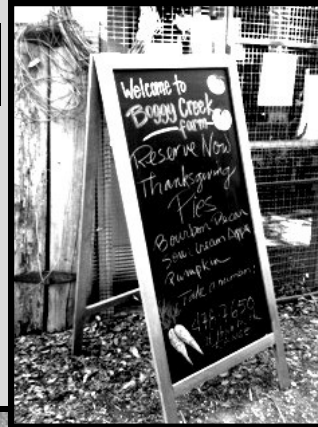 Welcome to
Boggy Creek
farm
Reserve Now
Thanksgiving
Pies
Bourbon Pecan
Sour Cream Apple
Pumpkin
Take a number: